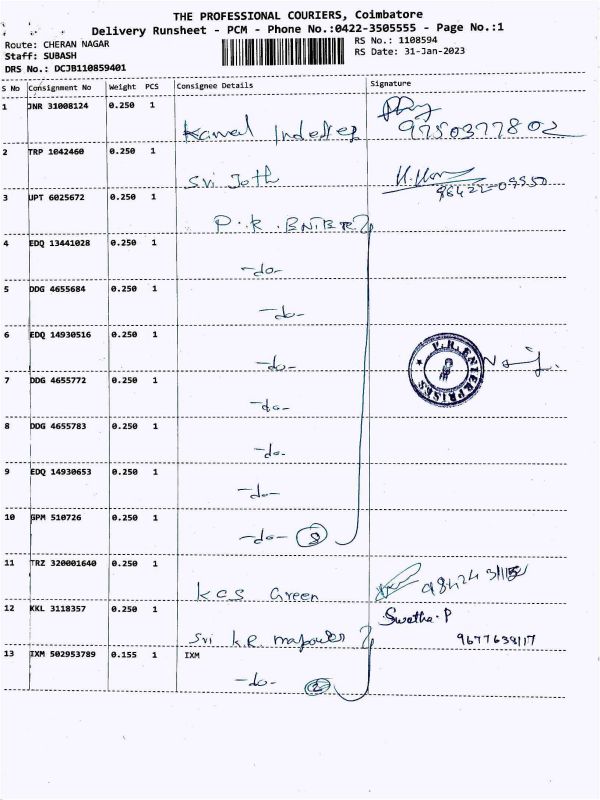 THE PROFESSIONAL COURIERS, Coimbatore
Delivery Runsheet - PCM - Phone No.:0422-3505555 - Page No.:1
Route: CHERAN NAGAR RS No.: 1108594
Staff: SUBASH RS Date: 31-Jan-2023
DRS No.: DCJB110859401
S No Consignment No Weight PCS Consignee Details Signature
1 JNR 31008124 0.250 1
Kamal 9750377802
2 TRP 1042460 0.250 1
Sri
3 UPT 6025672 0.250 1
P.R.
4 EDQ 13441028 0.250 1
-do-
5 DDG 4655684 0.250 1
-do-
6 EDQ 14930516 0.250 1
-do- P.R. ENTERPRISES
7 DDG 4655772 0.250 1
-do-
8 DDG 4655783 0.250 1
-do-
9 EDQ 14930653 0.250 1
-do-
10 GPM 510726 0.250 1
-do- 8
11 TRZ 320001640 0.250 1
KCS Green
12 KKL 3118357 0.250 1 Swatha.P
Sri K.R.
13 IXM 502953789 0.155 1 IXM
-do- 2